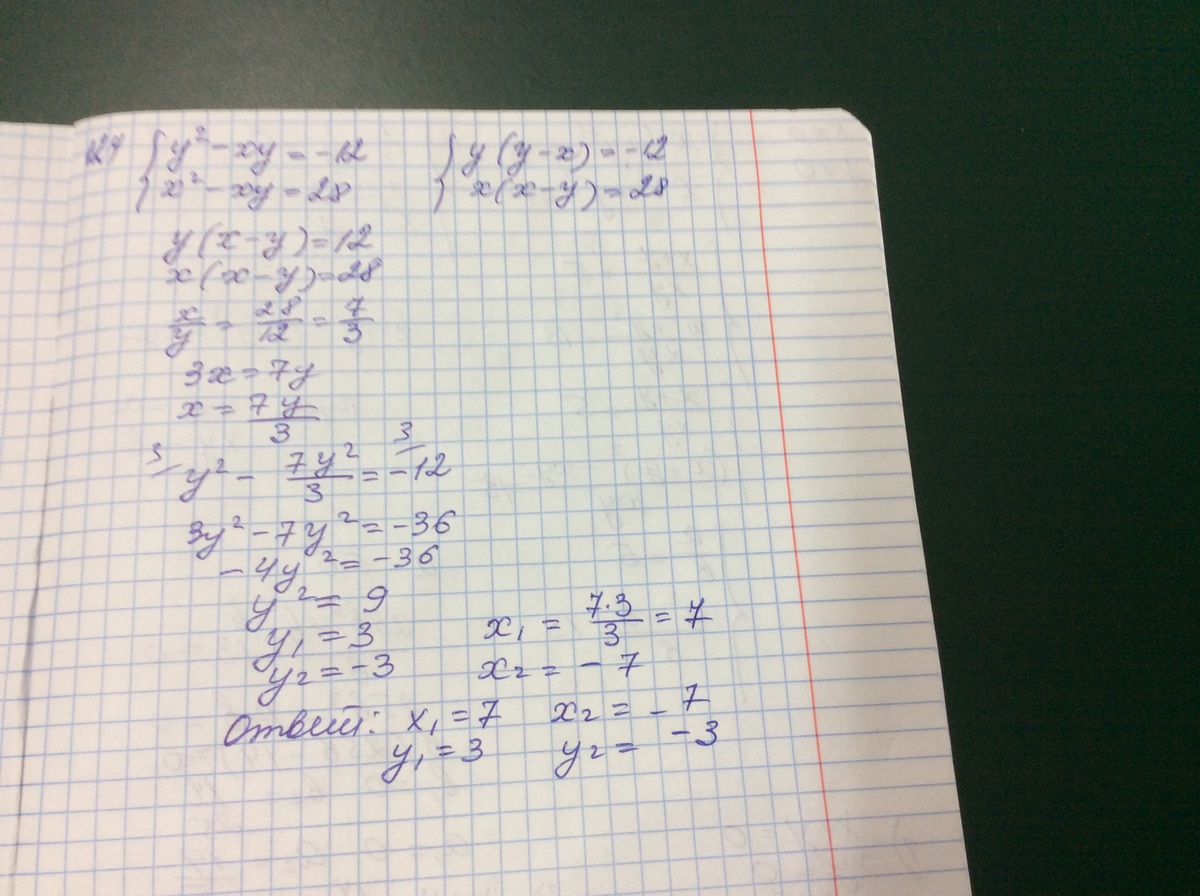 { y² - xy = -12 { y (y - x) = -12
{ x² - xy = 28 { x (x - y) = 28
y (x - y) = 12
x (x - y) = 28
x/y = 28/12 = 7/3
3x = 7y
x = 7y/3
3/ y² - 7y²/3 = 3/ -12
3y² - 7y² = -36
-4y² = -36
y² = 9
y₁ = 3 x₁ = 7·3/3 = 7
y₂ = -3 x₂ = -7
Ответ: x₁ = 7 x₂ = -7
y₁ = 3 y₂ = -3